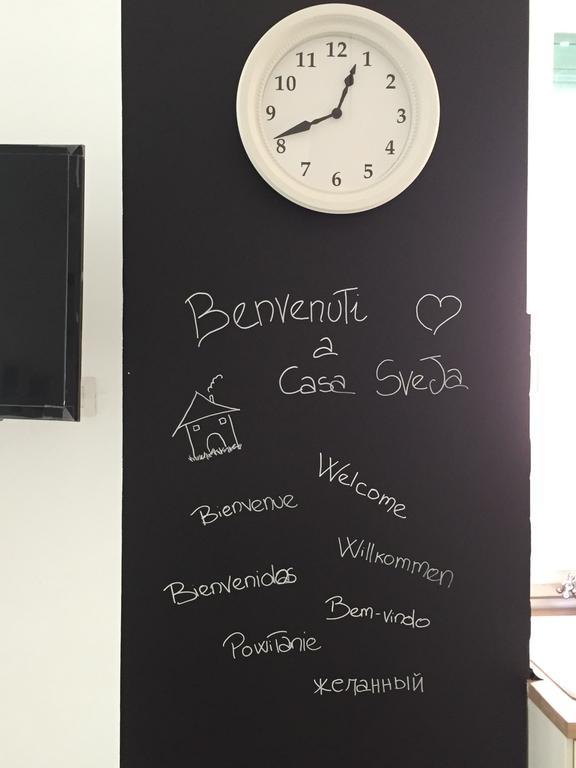 12
11 1
10 2
9 3
8 4
7 5
6
Benvenuti
a
Casa SveJa
Welcome
Bienvenue
Willkommen
Bienvenidas
Bem-vindo
Powitanie
желанный